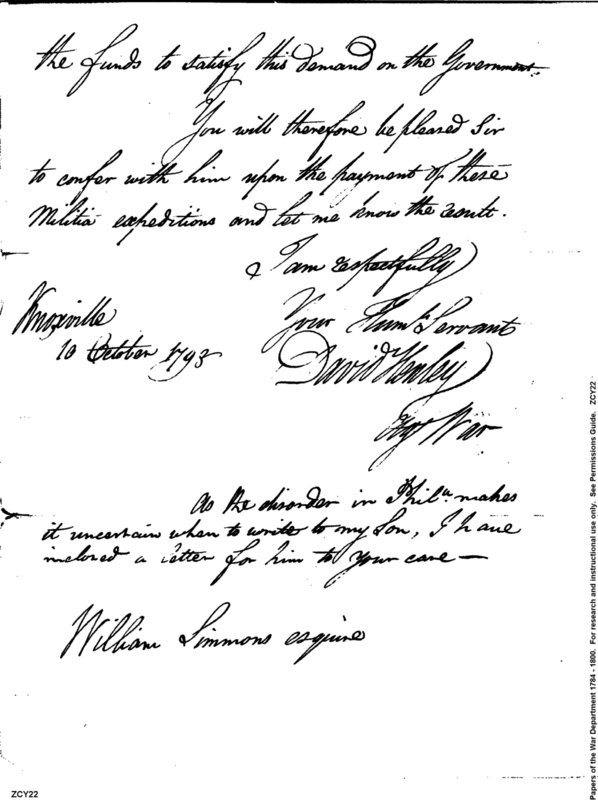 the funds to satisfy this demand on the Government.
You will therefore be pleased Sir
to confer with him upon the payment of these
Militia expeditions and let me know the result.
I am respectfully
Your Humle Servant
Knoxville
10 October 1793
David Henley
Agt War
As the disorder in Phila. makes
it uncertain when to write to my Son, I have
inclosed a letter for him to your care —
William Simmons esquire
Papers of the War Department 1784 - 1800. For research and instructional use only. See Permissions Guide. ZCY22
ZCY22